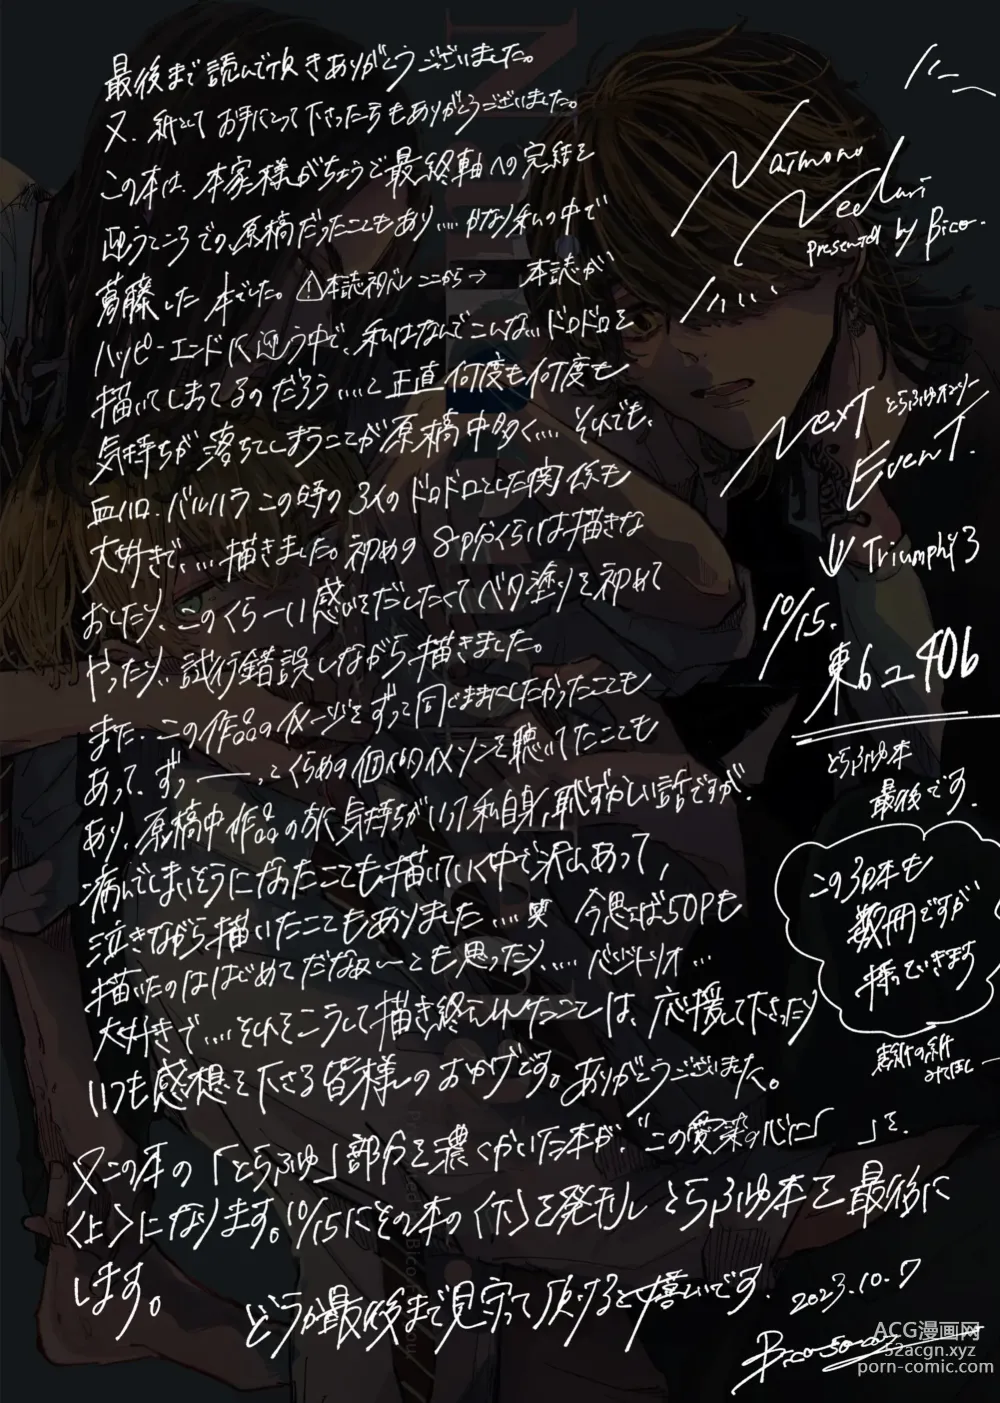 最後まで読んで頂きありがとうございました。
又、紙としてお手にとって下さった方もありがとうございました。
この本は、本家様がちょうど最終軸への完結を
迎うところでの原稿だったこともあり....かなり私の中で
葛藤した本でした。⚠本誌ネタバレここから→ 本誌が
ハッピーエンドに迎う中で、私はなんでこんな...ドロドロを
描いてしまってるのだろう....と正直何度も何度も
気持ちが落ちてしまうことが原稿中多く.... それでも、
血ハロ、バルハラこの時の3人のドロドロとした関係も
大好きで、...描きました。初めの8P分くらいは描きな
おしたり、このくらーい感じをだしたくてベタ塗りを初めて
やったり、試行錯誤しながら描きました。
また、この作品のイメージをずっと同じままにしたかったことも
あって、ずっーーーっとくらめの個人的イメソンを聴いてたことも
あり、原稿中作品の方に気持ちがいって私自身、恥ずかしい話ですが、
病んでしまいそうになったことも描いていく中で沢山あって、
泣きながら描いたこともありました....笑 今思えば50Pも
描いたのははじめてだなぁーとも思ったり.... バジトリオ...
大好きで....それでこうして描き終えれたことは、応援して下さったり
いつも感想を下さる皆様のおかげです。ありがとうございました。
又この本の「とらふゆ」部分を濃くかいた本が、"この愛染の心に「 」を、
〈上〉になります。10/15にその本の〈下〉を発行しとらふゆ本を最後に
します。
どうか最後まで見守って頂けると嬉しいです。
2023.10.7
Naimono
Nedari
presented by Bico.
Next とらふゆオンリー
Event.
↓ Triumphy 3
10/15.
東6ユ40b
とらふゆ本
最後です。
この3日本も
数冊ですが
持っていきます
表紙の紙
みてほしー
ACG漫画网
52acgn.xyz
porn-comic.com